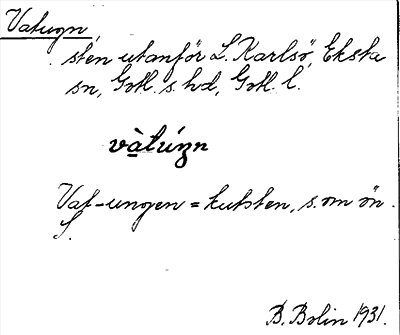 Vatugn,
sten utanför L. Karlsö, Eksta
sn, Gotl. s. hd, Gotl. l.
vàtúgn
Vat-ungen = kutsten, s. om ön.
S.
B. Bolin 1931.